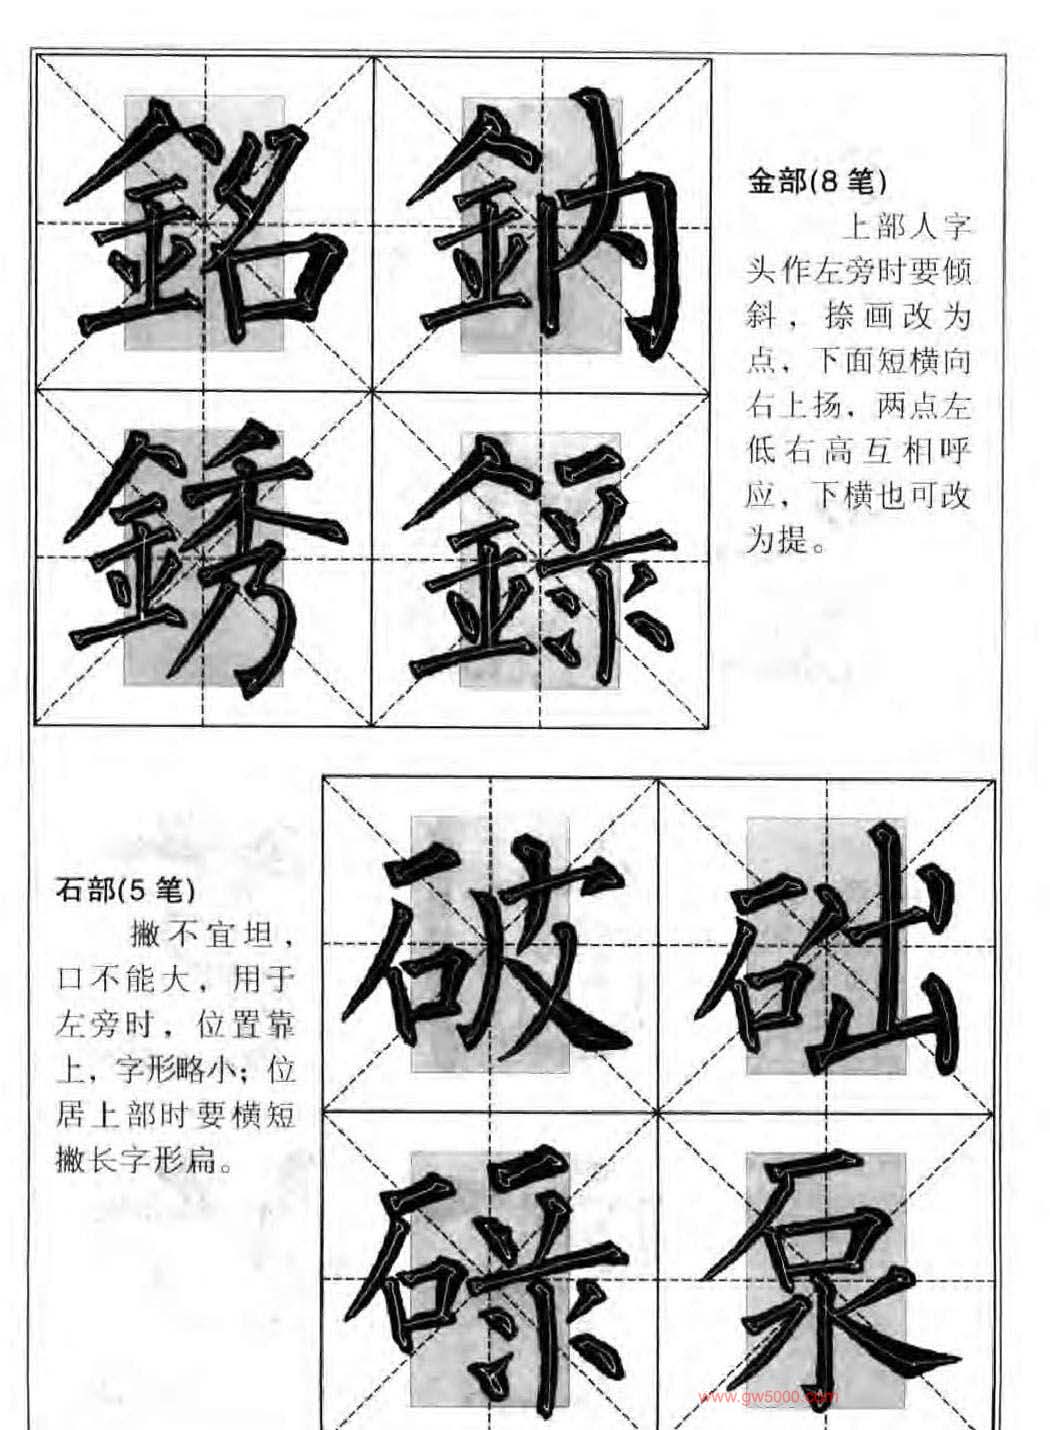 銘 鈉
銹 錄
金部(8 笔)
上部人字
头作左旁时要倾
斜，捺画改为
点，下面短横向
右上扬，两点左
低右高互相呼
应，下横也可改
为提。
石部(5 笔)
撇不宜坦，
口不能大，用于
左旁时，位置靠
上，字形略小；位
居上部时要横短
撇长字形扁。
破 础
碌 泵
www.gw5000.com